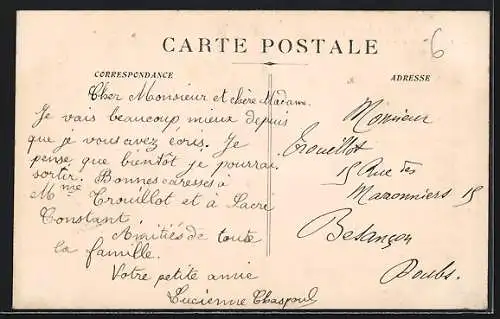 6
CARTE POSTALE
CORRESPONDANCE
ADRESSE
Cher Monsieur et chère Madame.
Je vais beaucoup mieux depuis
que je vous avez écris. Je
pense que bientôt je pourrai
sortir. Bonnes caresses à
Mme Trouillot et à Sacré
Constant.
Amitiés de toute
la famille.
Votre petite amie
Lucienne
Monsieur
Trouillot
15 Rue des
Maronniers 15
Besançon
Doubs.